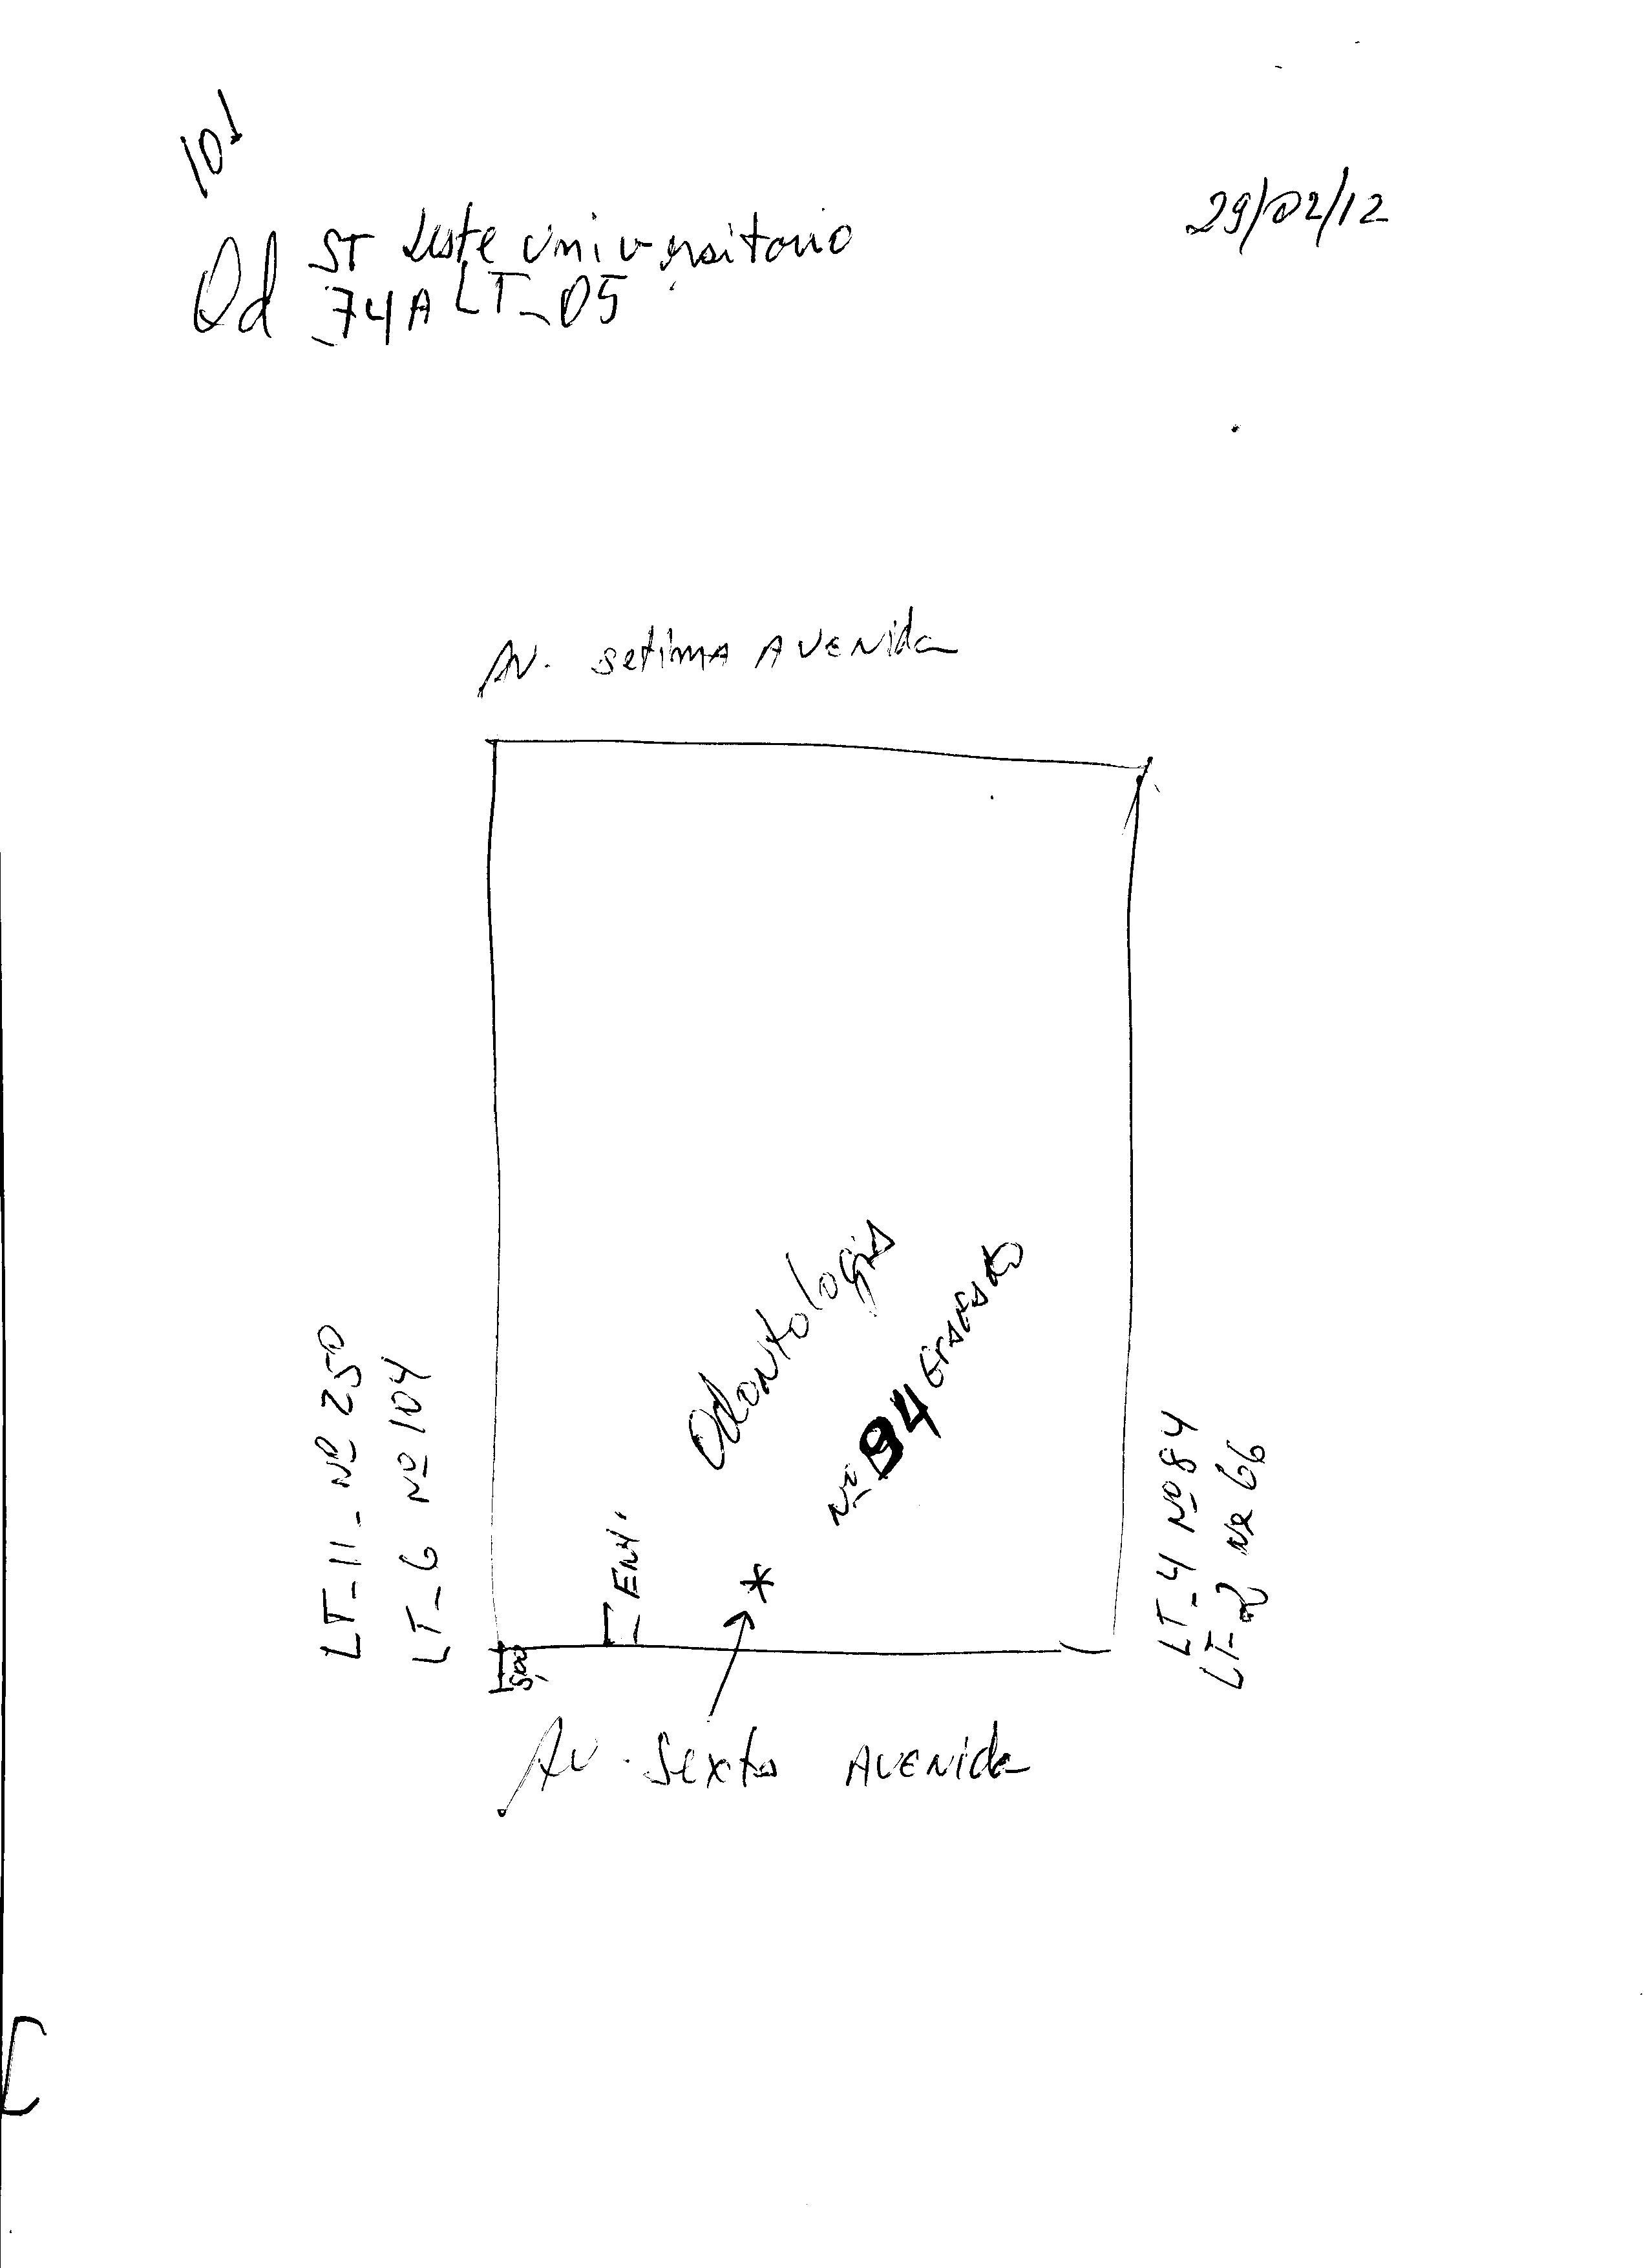 101
ST Leste Universitario
Qd 74A LT_05
29/02/12
AV. setima AVENida
Odontologia
Nº 94
LT_11_Nº 250
LT_6 Nº 104
Ent.
LT_4 Nº 84
LT_ Nº 66
5,00
AV. Sexta AVENida